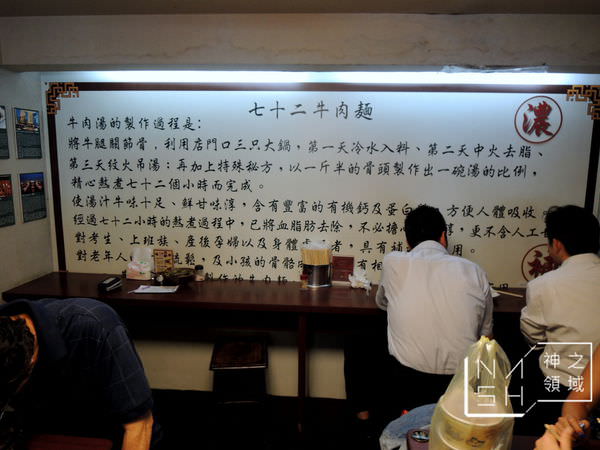 七十二牛肉麵
濃
牛肉湯的製作過程是：
將牛腿關節骨，利用店門口三只大鍋，第一天冷水入料、第二天中火去脂、
第三天纹火吊湯；再加上特殊秘方，以一斤半的骨頭製作出一碗湯的比例，
精心熬煮七十二個小時而完成。
使湯汁牛味十足、鮮甘味淳，含有豐富的有機鈣及蛋白 方便人體吸收。
經過七十二小時的熬煮過程中，已將血脂肪去除，不必擔 更不含人工
對考生、上班族、産後孕婦以及身體 者，具有 用。
對老年人 鬆，及小孩的骨骼 有相
製作的牛肉
神之
領域
NMSH